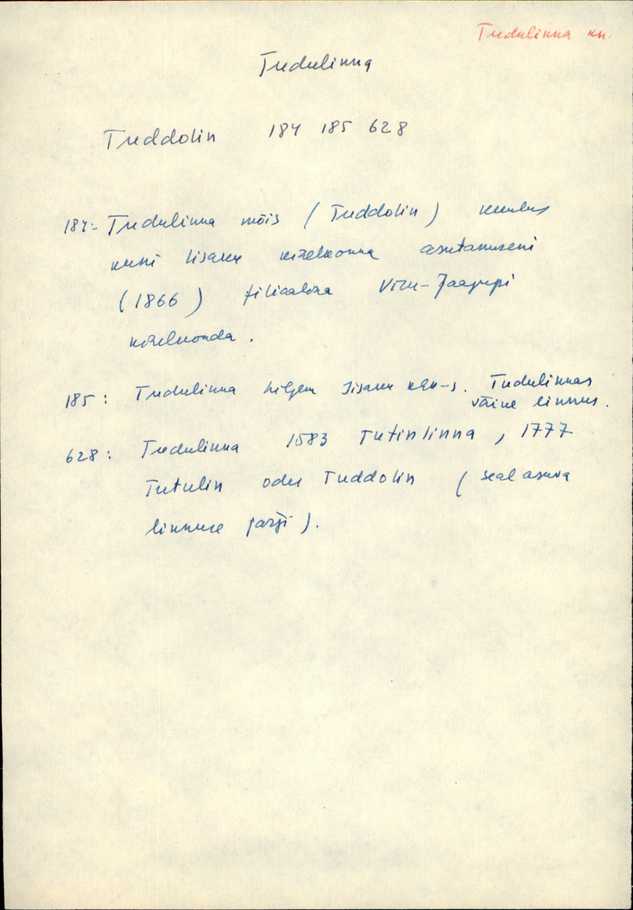 Tudulinna kn.
Tudulinna
Tuddolin 184 185 628
184: Tudulinna mõis (Tuddolin) kuulus
kuni Iisaku kihelkonna asutamiseni
(1866) filiaalina Viru-Jaagupi
kihelkonda.
185: Tudulinna hiljem Iisaku khk-s. Tudulinnas
väike linnus.
628: Tudulinna 1583 Tutinlinna, 1777
Tutulin oder Tuddolin (seal asuva
linnuse järgi).